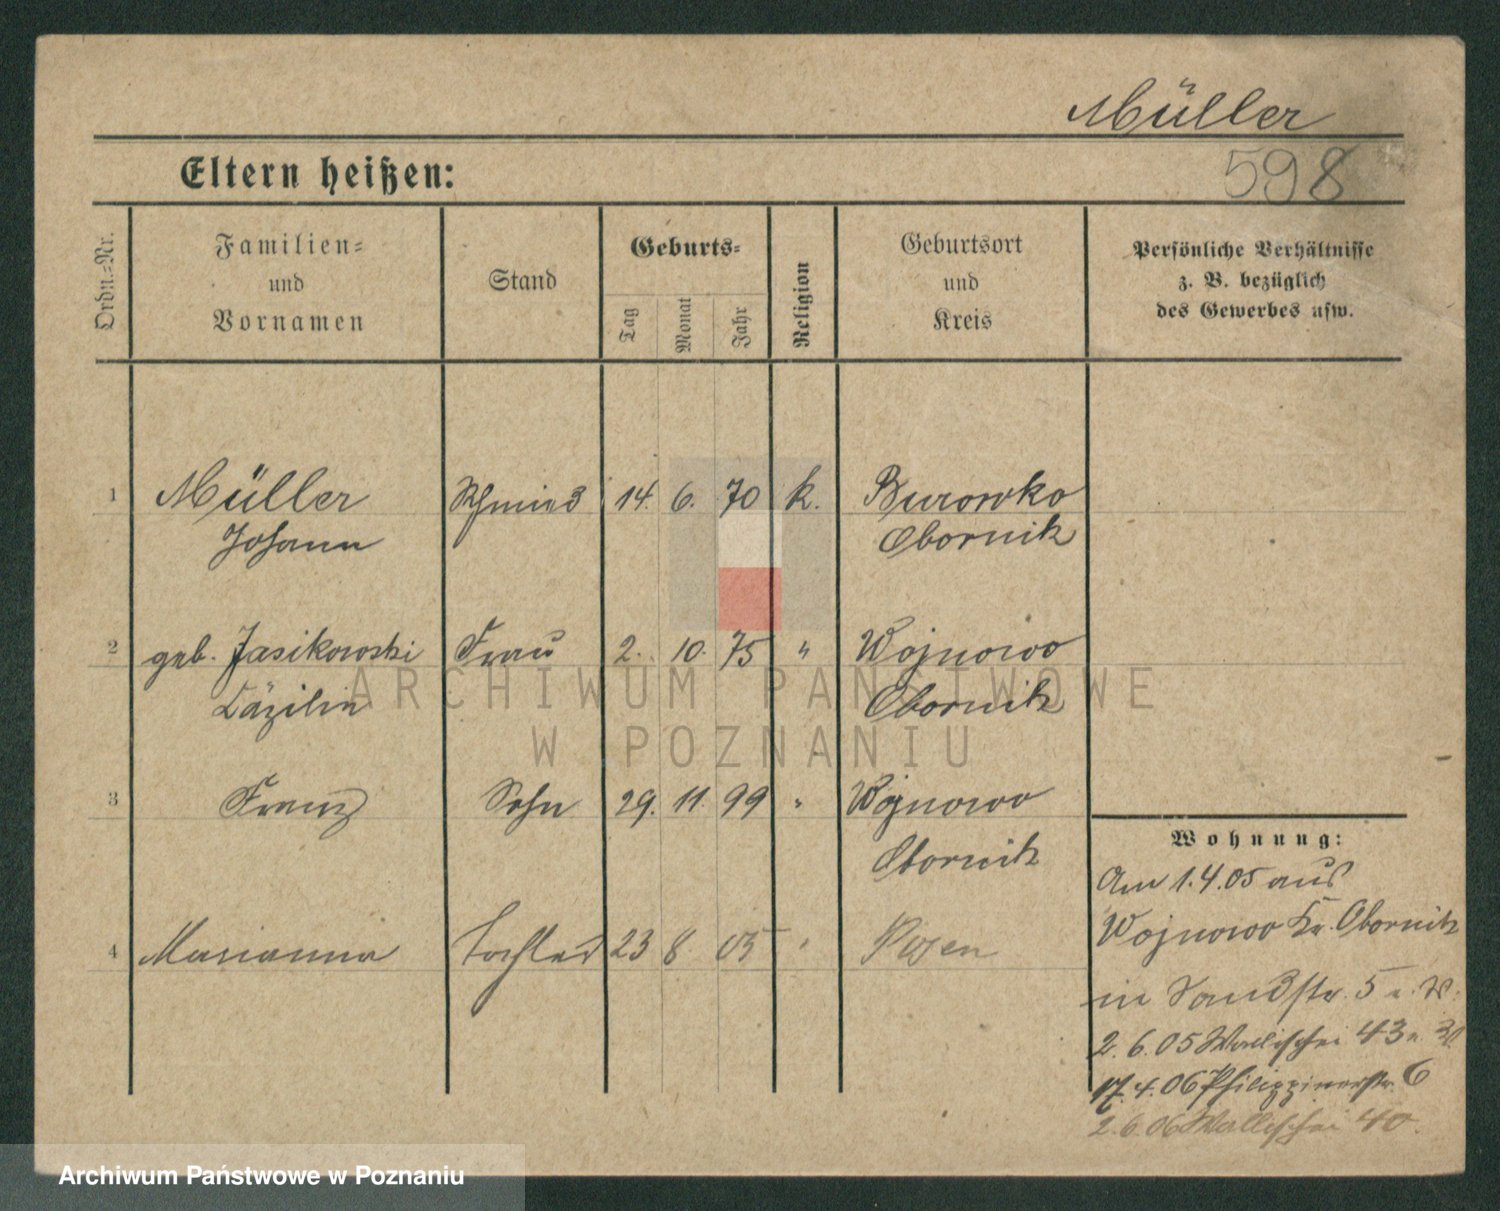 Müller
Eltern heißen:
598
Ordn.-Nr.
Familien-
und
Vornamen
Stand
Geburts-
Tag
Monat
Jahr
Religion
Geburtsort
und
Kreis
Persönliche Verhältnisse
z. B. bezüglich
des Gewerbes usw.
1 Müller Schmied 14. 6. 70 k. Burowko
Johann Obornik
2 geb. Jasikowski Frau 2. 10. 75 " Wojnowo
Cäzilia Obornik
ARCHIWUM PAŃSTWOWE
W POZNANIU
3 Franz Sohn 29. 11. 99 " Wojnowo
Obornik
4 Marianna Tochter 23 8 05 " Posen
Wohnung:
Am 1.4.05 aus
Wojnowo Kr. Obornik
in Sandstr. 5
2.6.05 Wallischei 43
17.4.06 Philippinerstr. 6
2.6.06 Wallischei 40.
Archiwum Państwowe w Poznaniu